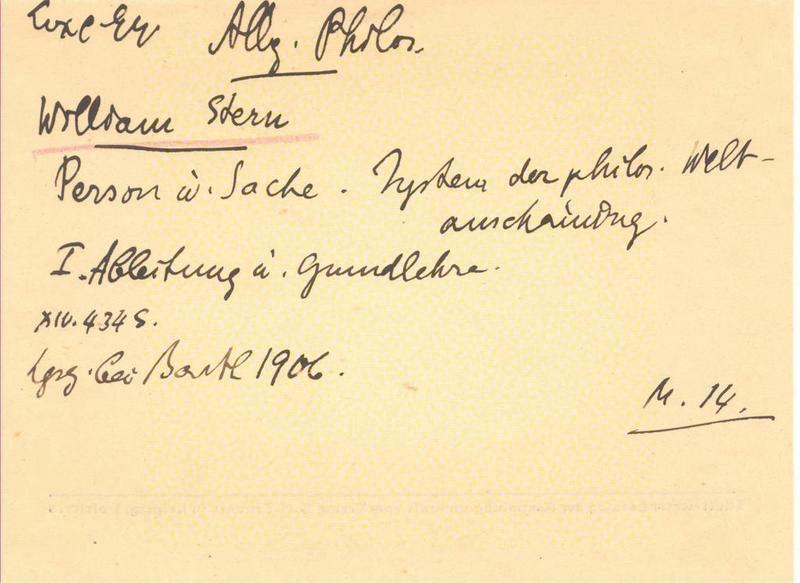 Allg. Philos.
William Stern
Person u. Sache. System der philos. Welt-
anschauung.
I. Ableitung u. Grundlehre.
XIV. 434 S.
Lpzg. bei Barth 1906.
M. 14.